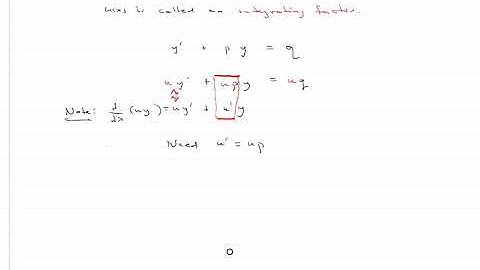 u(x) is called an integrating factor.
y' + p y = q
u y' + u p y = u q
Note: d/dx (uy) = u y' + u' y
Need u' = u p